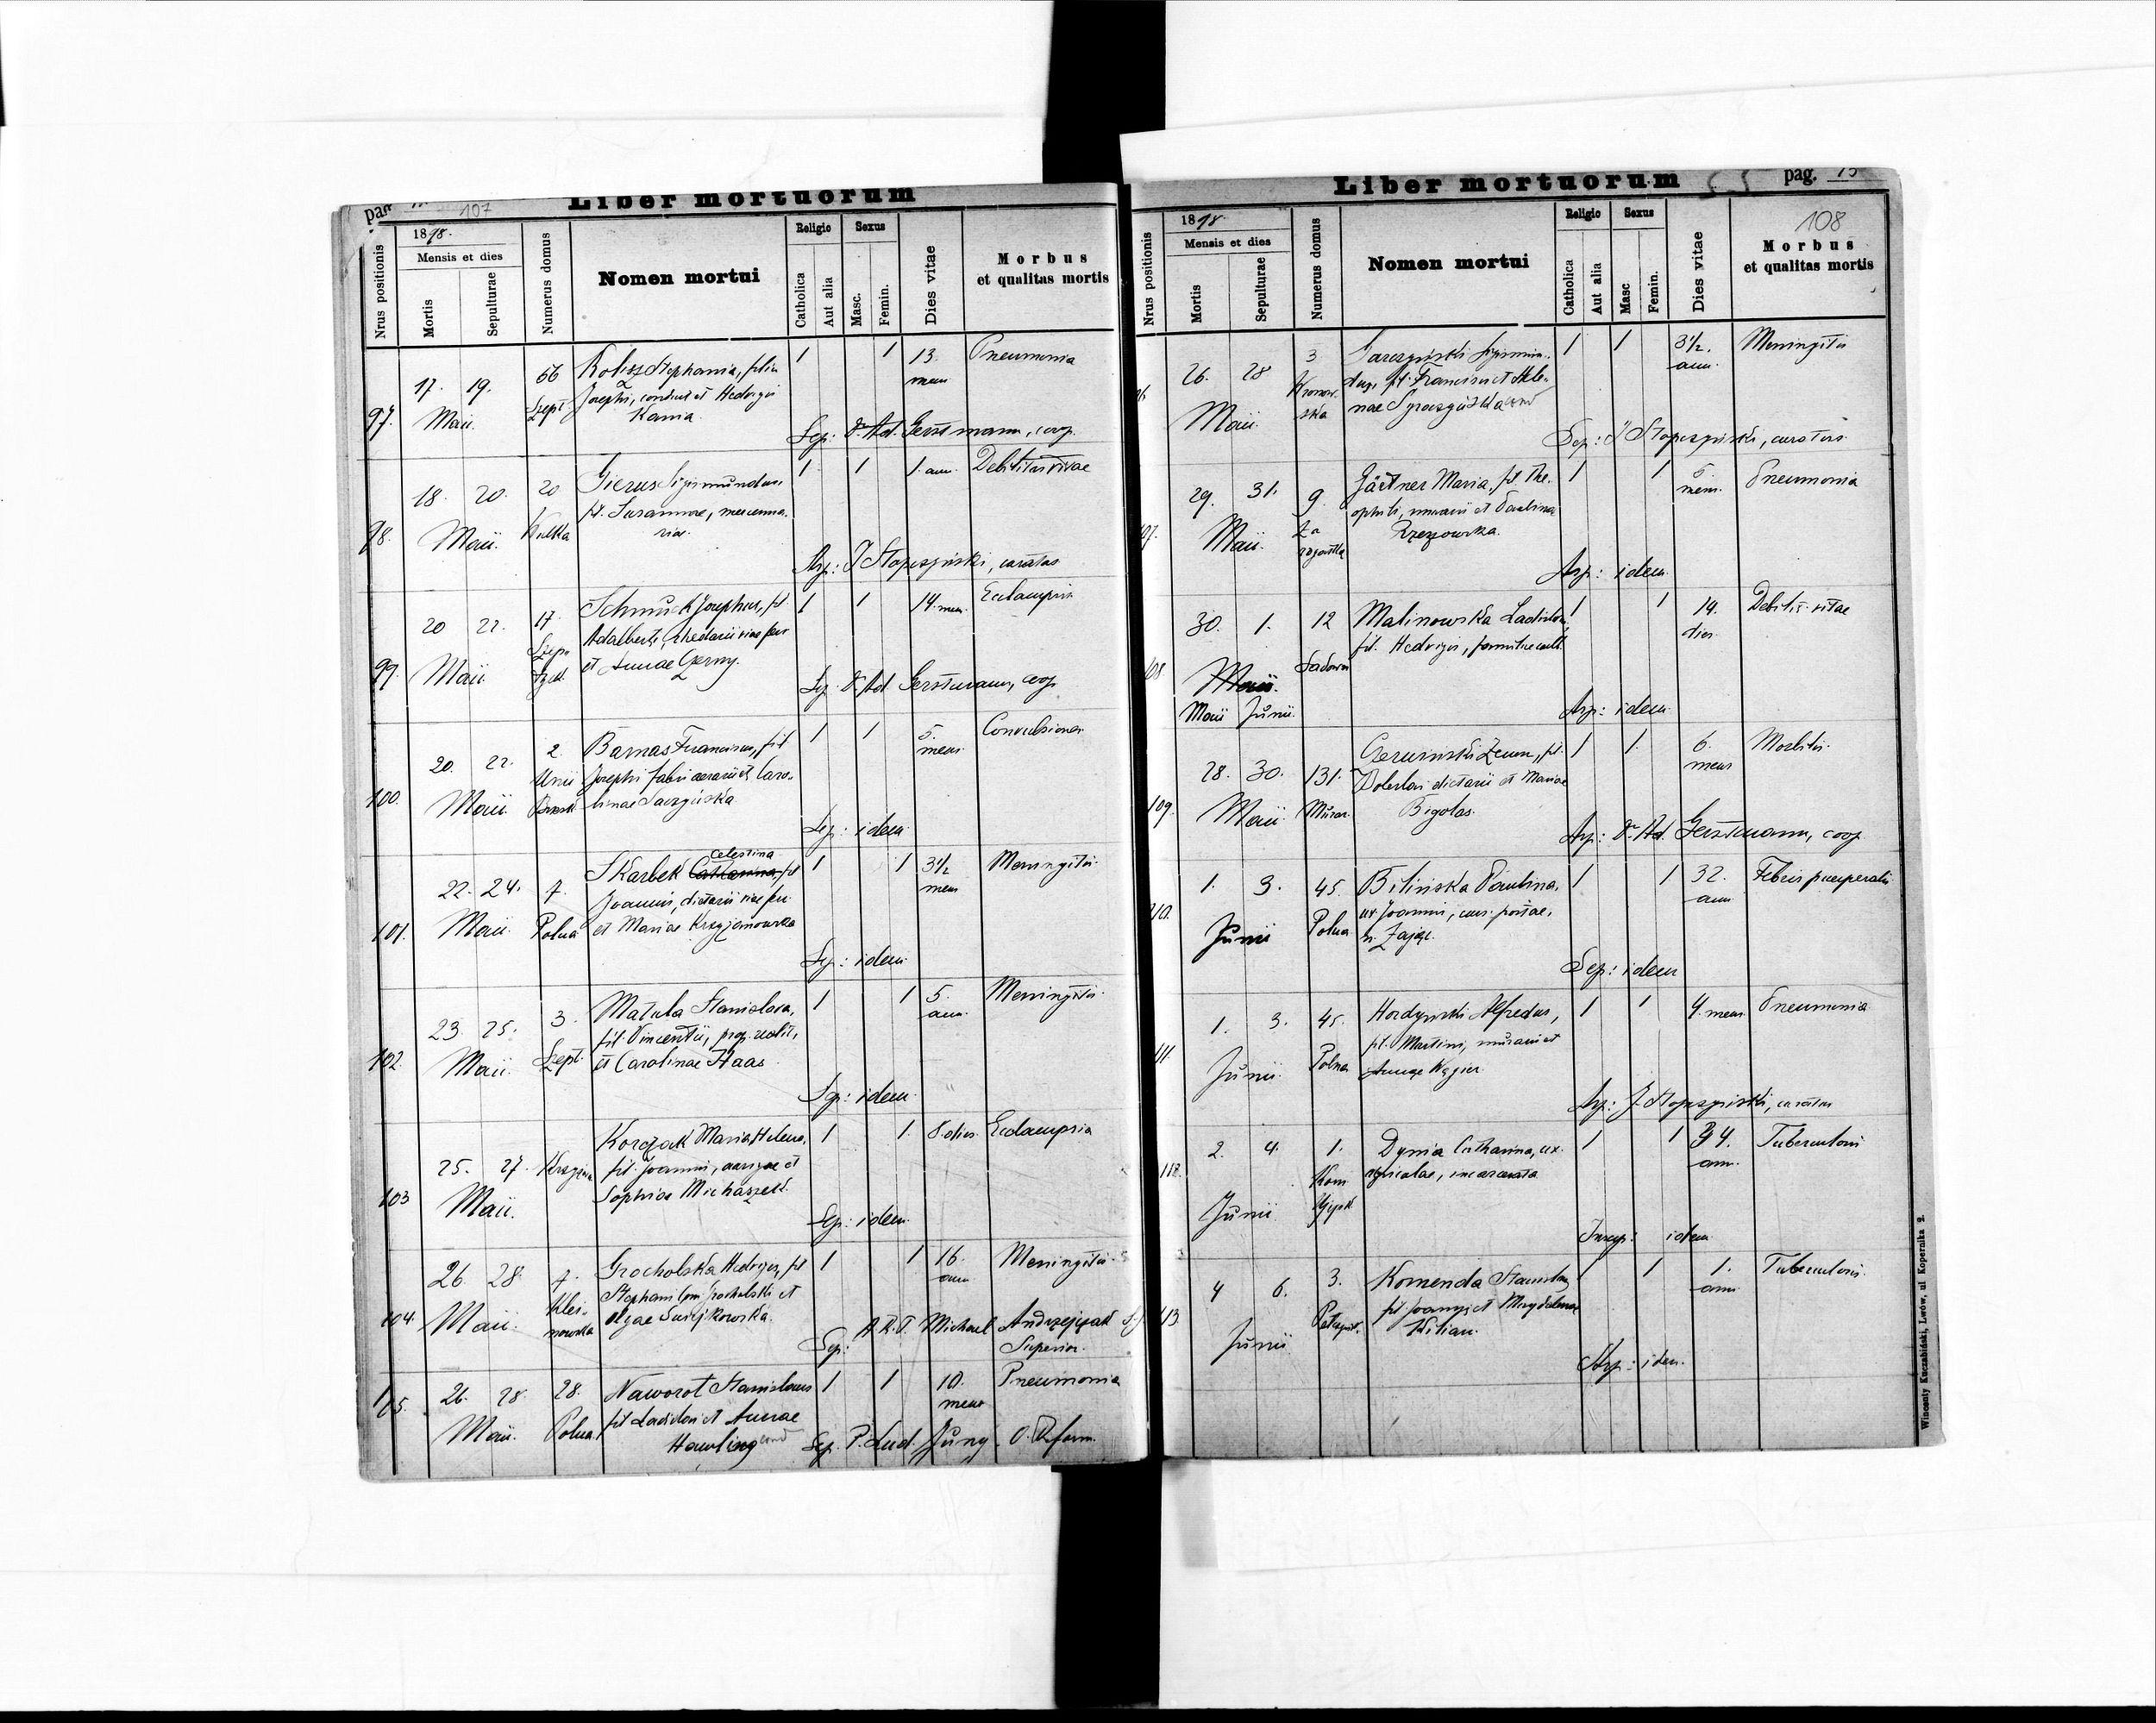 Liber mortuorum
107
1898.
Mensis et dies
Nrus positionis
Mortis
Sepulturae
Numerus domus
Nomen mortui
Religio
Catholica
Aut alia
Sexus
Masc.
Femin.
Dies vitae
Morbus
et qualitas mortis
97. 17. 19. Maii. 56 Szept.
Kolisz Stephania, filia
Josephi, conduct et Hedvigis
Kania.
1 1 13. mens Pneumonia
Sep: Dr Ad. Gerstmann, coop.
98. 18. 20. Maii. 20 Kulka
Gierus Sigismundus,
fil. Susannae, mercenna-
riae.
1 1 1. ann. Debilitas vitae
Asp: J Stopczyński, curatus
99. 20 22. Maii 17.
Schmuck Josephus, fil
Adalberti, rhedarii viae ferr
et Annae Czerny.
1 1 14. mens Eclampsia
Sep Dr Ad. Gerstmann, coop
100. 20. 22. Maii. 2. Unii
Barnas Franciscus, fil
Josephi fabri aerarii et Caro-
linae Saczyńska
1 1 5. mens. Convulsiones
Sep: idem
101. 22. 24. Maii 7. Polna
Celestina
Skarbek Catharina, fil
Joannis, dietarii viae ferr
et Mariae Krzyżanowska
1 1 3 1/2 mens Meningitis.
Sep: idem
102. 23. 25. Maii. 3. Szept.
Matula Stanislava,
fil. Vincentii, prop. realit,
et Carolinae Haas
1 1 5. ann. Meningitis.
Sep: idem
103 25. 27. Maii.
Korczak Maria Helena,
fil. Joannis, aurigae et
Sophiae Michaszek.
1 1. 8. dies. Eclampsia
Sep: idem
104. 26 28 Maii. 7. Klei-
nowska
Grocholska Hedvigis, fil
Stephani com. Grocholski et
Olgae Świejkowska.
1 1 16. ann Meningitis.
Sep: A. R. P. Michael Andrzejczak S.J
Superior.
105. 26. 28. Maii. 28. Polna.
Naworot Stanislaus
fil Ladislai et Annae
Hawling
1 1 10. mens Pneumonia
Sep. P. Lud. Jung. O. Reform.
Liber mortuorum pag. 15
108
1898.
Mensis et dies
Nrus positionis
Mortis
Sepulturae
Numerus domus
Nomen mortui
Religio
Catholica
Aut alia
Sexus
Masc
Femin.
Dies vitae
Morbus
et qualitas mortis
26. 28 Maii. 3
ska
fil. Francisci et Hele-
nae
1 1 3 1/2. ann. Meningitis
Sep: J Stopczyński, curatus.
29. 31. Maii. 9. Za
rogatką
Gärtner Maria, fil. The-
ophili, murarii et Paulinae
Rzeszowska.
1 1 5. mens. Pneumonia
Asp: idem
30. 1. Maii. 12 Sadowa
Maii Junii.
Malinowska Ladislava,
fil. Hedvigis, famulae
1 1 14. dies Debilit. vitae
Asp: idem
109. 28. 30. Maii 131. Murow.
Czerwiński Zeno, fil.
Boleslai dietarii et Mariae
Bigolas.
1 1. 6. mens Morbilli.
Asp: Dr Ad. Gerstmann, coop
110. 1. 3. Junii 45. Polna
Bilińska Paulina,
ux Joannis, curs. postae,
n. Zając.
1 1 32. ann Febris puerperalis
Sep: idem
111. 1. 3. Junii 45. Polna
Hordyński Alfredus,
fil. Martini, murarii et
Annae Węgier.
1 1 4. mens. Pneumonia
Asp: J. Stopczyński, curatus
112. 2. 4. Junii 1.
Dynia Catharina, ux.
agricolae, incarcerata
1 1 34. ann. Tuberculosis
Insp: idem
113. 4 6. Junii 3.
Komenda Stanislaus,
fil Joannis et Magdalenae
Kilian.
1 1 1. ann Tuberculosis.
Asp: idem.
Wincenty Kuczabiński, Lwów, ul Kopernika 2.